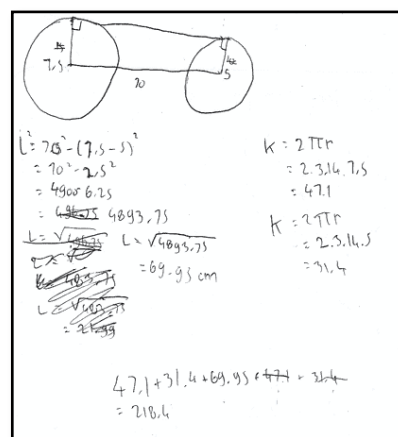 7,5
5
70
L² = 70² - (7,5 - 5)²
= 70² - 2,5²
= 4900 6.25
= 4893,75
L = √4893,75
= 69.95 cm
K = 2πr
= 2.3,14.7,5
= 47.1
K = 2πr
= 2.3,14.5
= 31.4
47.1 + 31.4 + 69.95 + 47.1 + 31.4
= 218.4